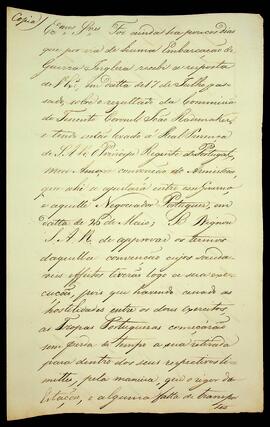 (Copia)
Ex.mos Snres. Foi ainda há poucos dias
que por via de huma Embarcação de
Guerra Ingleza recebi a resposta
de V. E. em datta de 17 de Julho pas
sado, sobre o resultado da Commissão
do Tenente Coronel João Rademaker,
e tendo então levado á Real Prezença
de S. A. R. o Principe Regente de Portugal,
meu Amo, a convenção de Armisticio
que ahi se ajustará entre esse Governo
e aquelle Negociador Portuguez, em
datta de 26 de Maio; Se Dignou
S. A. R. de approvar os termos
daquella convenção cujos saudá
veis effeitos tiverão logo a sua exe
cução, pois que havendo cessado as
hostilidades entre os dous exercitos
as Tropas Portuguezas começárão
sem perda de tempo a sua retirada
para dentro dos seus respectivos li
mittes, pela maneira, que o rigor da
Estação, e alguma falta de transpor
tes